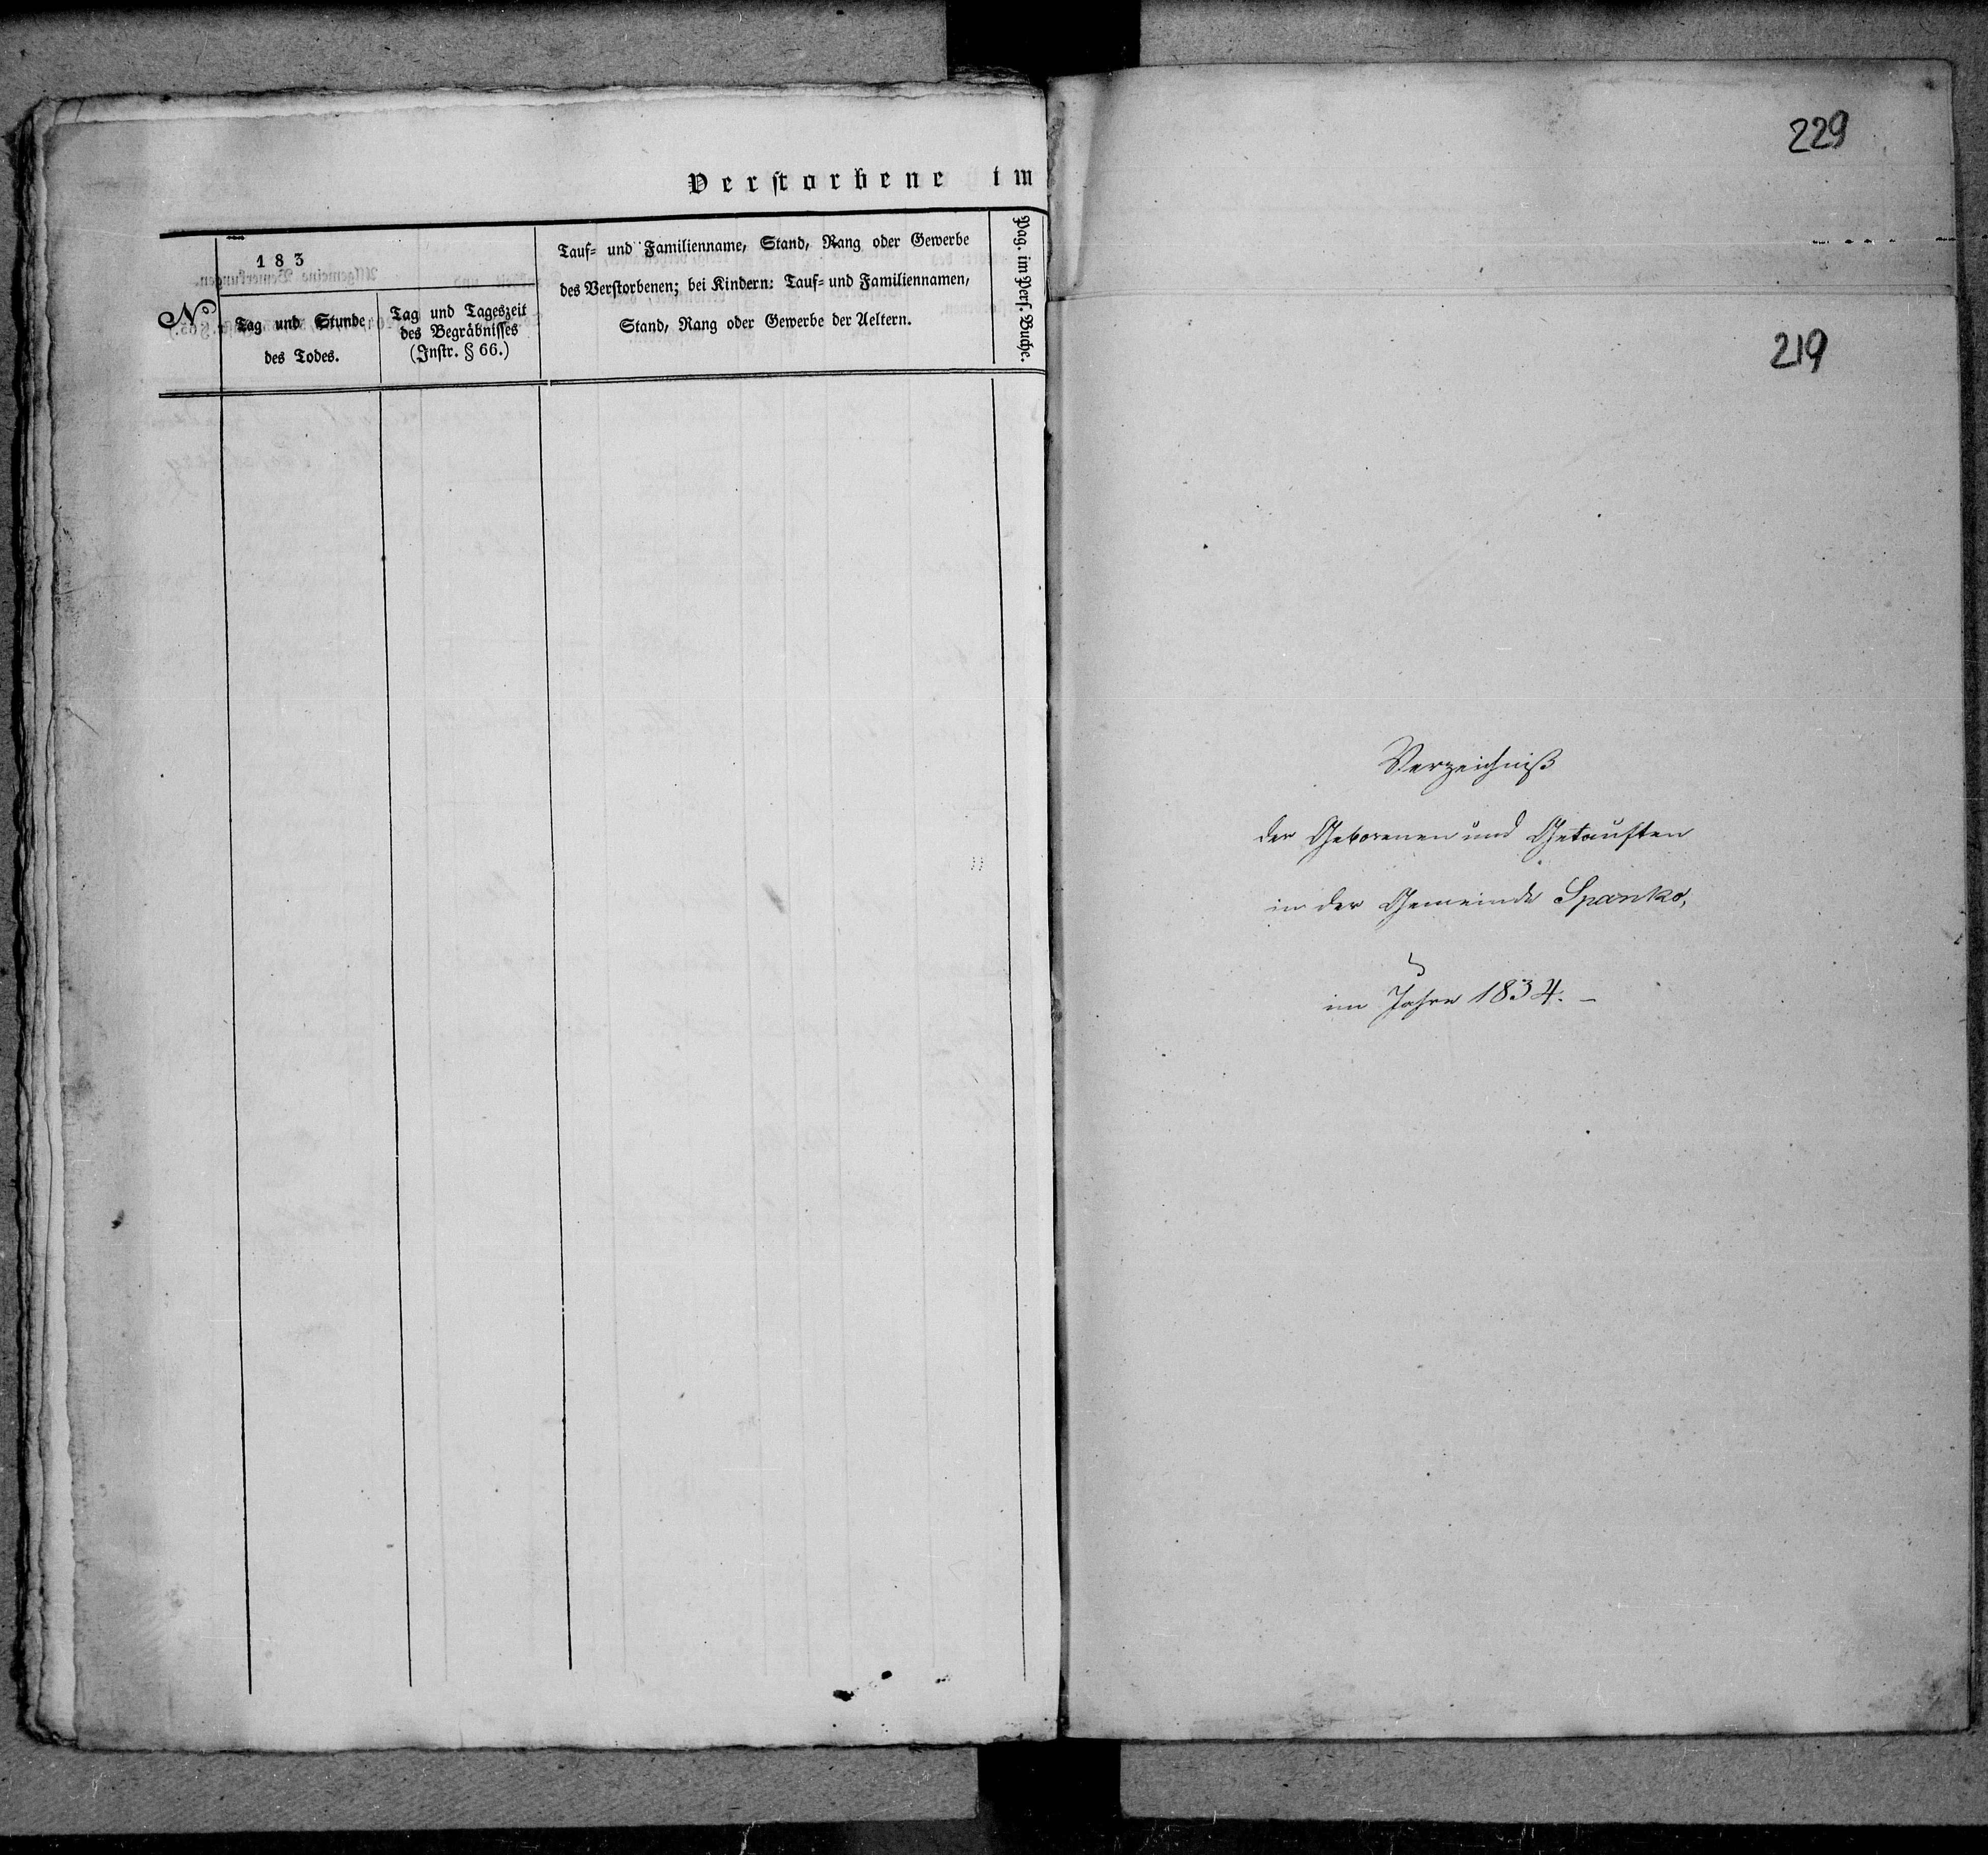 Verstorbene im
No
183
Tag und Stunde
des Todes.
Tag und Tageszeit
des Begräbnisses
(Instr. § 66.)
Tauf= und Familienname, Stand, Rang oder Gewerbe
des Verstorbenen; bei Kindern: Tauf= und Familiennamen,
Stand, Rang oder Gewerbe der Aeltern.
Pag. im Pers. Buche.
229
219
Verzeichniß
der Geborenen und Getauften
in der Gemeinde Spanko,
im Jahre 1834. –